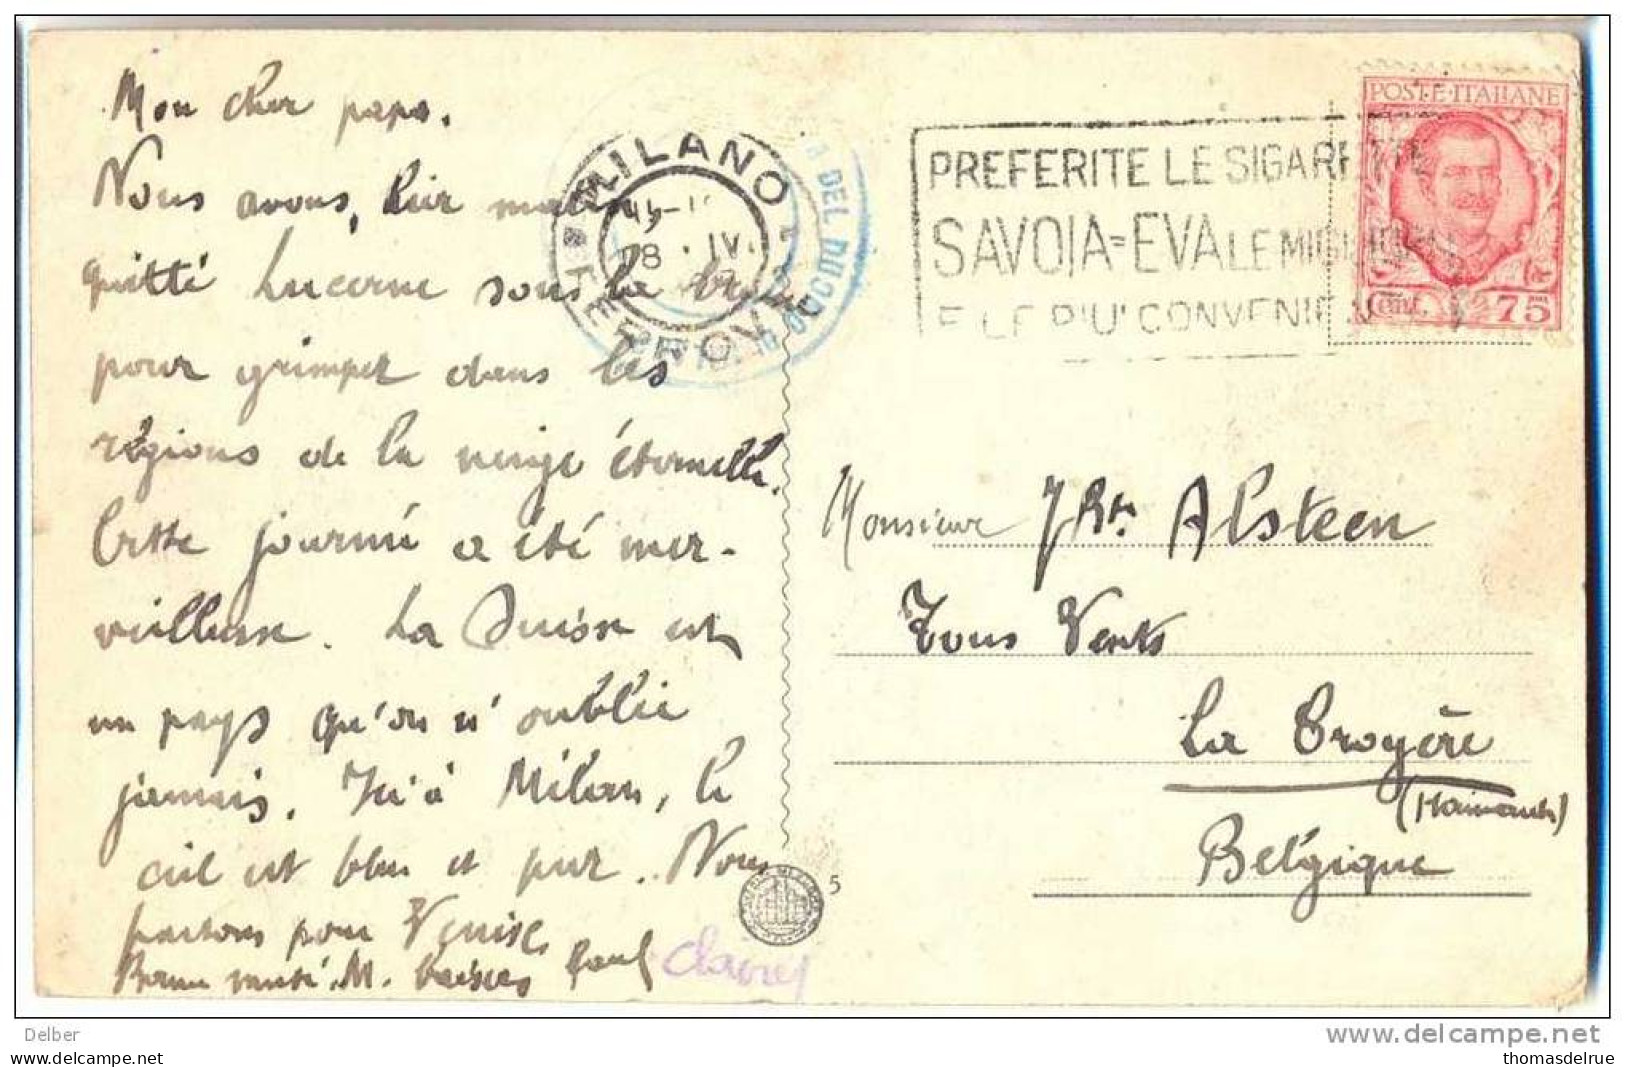 Mon cher papa.
Nous avons, hier matin
quitté Lucerne sous la
pour grimper dans les
régions de la neige éternelle.
Cette journée a été mer-
veilleuse. La Suisse est
un pays qu'on n'oublie
jamais. Ici à Milan, le
ciel est bleu et pur. Nous
partons pour Venise.
Bonne santé. M. baisers Paul
Clairej
MILANO
18 · IV
FERROVIA
DEL DUOMO
PREFERITE LE SIGARETTE
SAVOIA=EVA LE MIGLIORI
E LE PIU' CONVENIENTI
POSTE·ITALIANE
Cent. 75
Monsieur Alsteen
Tous Vents
La Croyère
(Hainaut)
Belgique
5
Delber
www.delcampe.net
klop
thomasdelrue